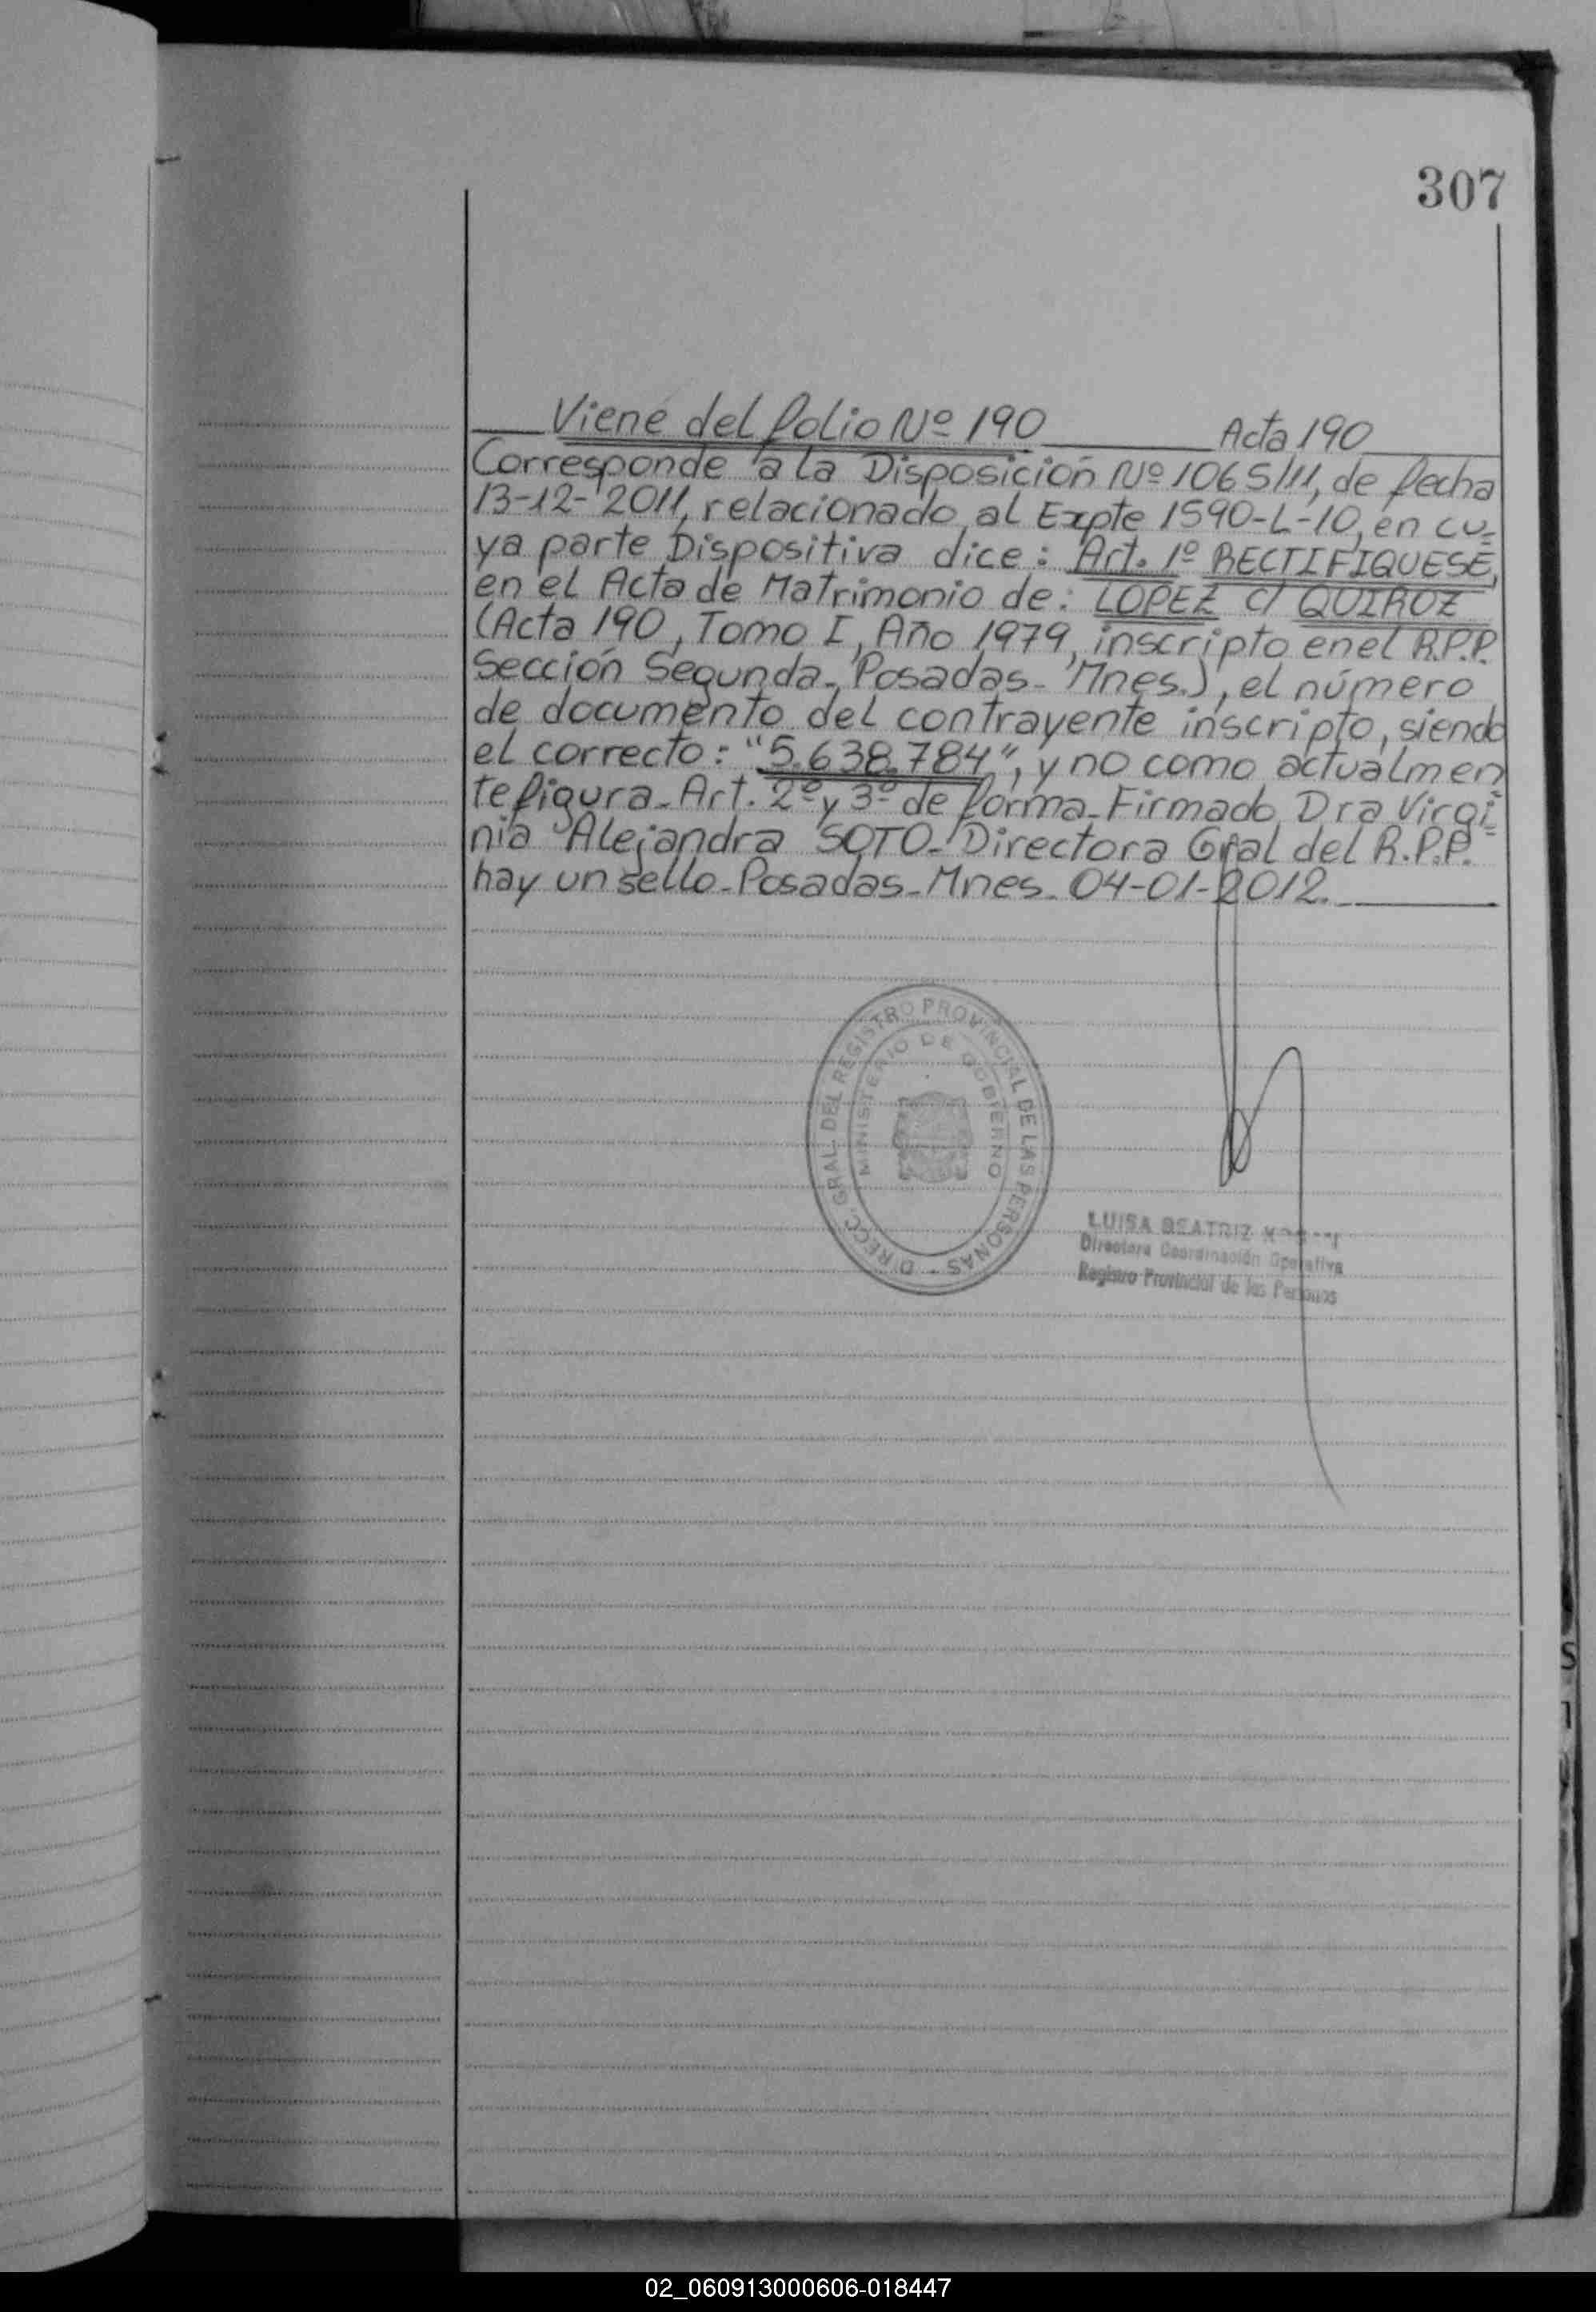 307
Viene del folio Nº 190 Acta 190
Corresponde a la Disposición Nº 1065/11, de fecha
13-12-2011, relacionado al Expte 1590-L-10, en cu=
ya parte Dispositiva dice: Art. 1º RECTIFIQUESE,
en el Acta de Matrimonio de: LOPEZ c/ QUIROZ
(Acta 190, Tomo I, Año 1979, inscripto en el R.P.P.
Sección Segunda- Posadas- Mnes.), el número
de documento del contrayente inscripto, siendo
el correcto: "5.638.784", y no como actualmen
te figura- Art. 2º y 3º de forma- Firmado Dra Virgi=
nia Alejandra SOTO- Directora Gral del R.P.P.
hay un sello- Posadas- Mnes- 04-01-2012.
DIRECC. GRAL. DEL REGISTRO PROVINCIAL DE LAS PERSONAS -
MINISTERIO DE GOBIERNO
LUISA BEATRIZ
Directora Coordinación Operativa
Registro Provincial de las Personas
02_060913000606-018447